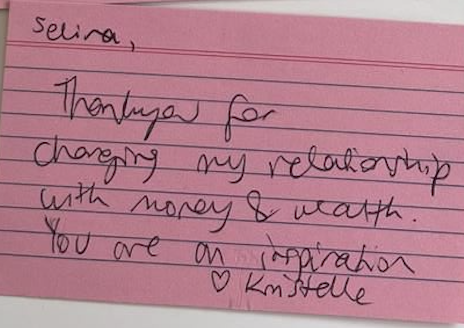 Selina,
Thankyou for
changing my relationship
with money & wealth.
You are an inspiration
♡ Kristelle